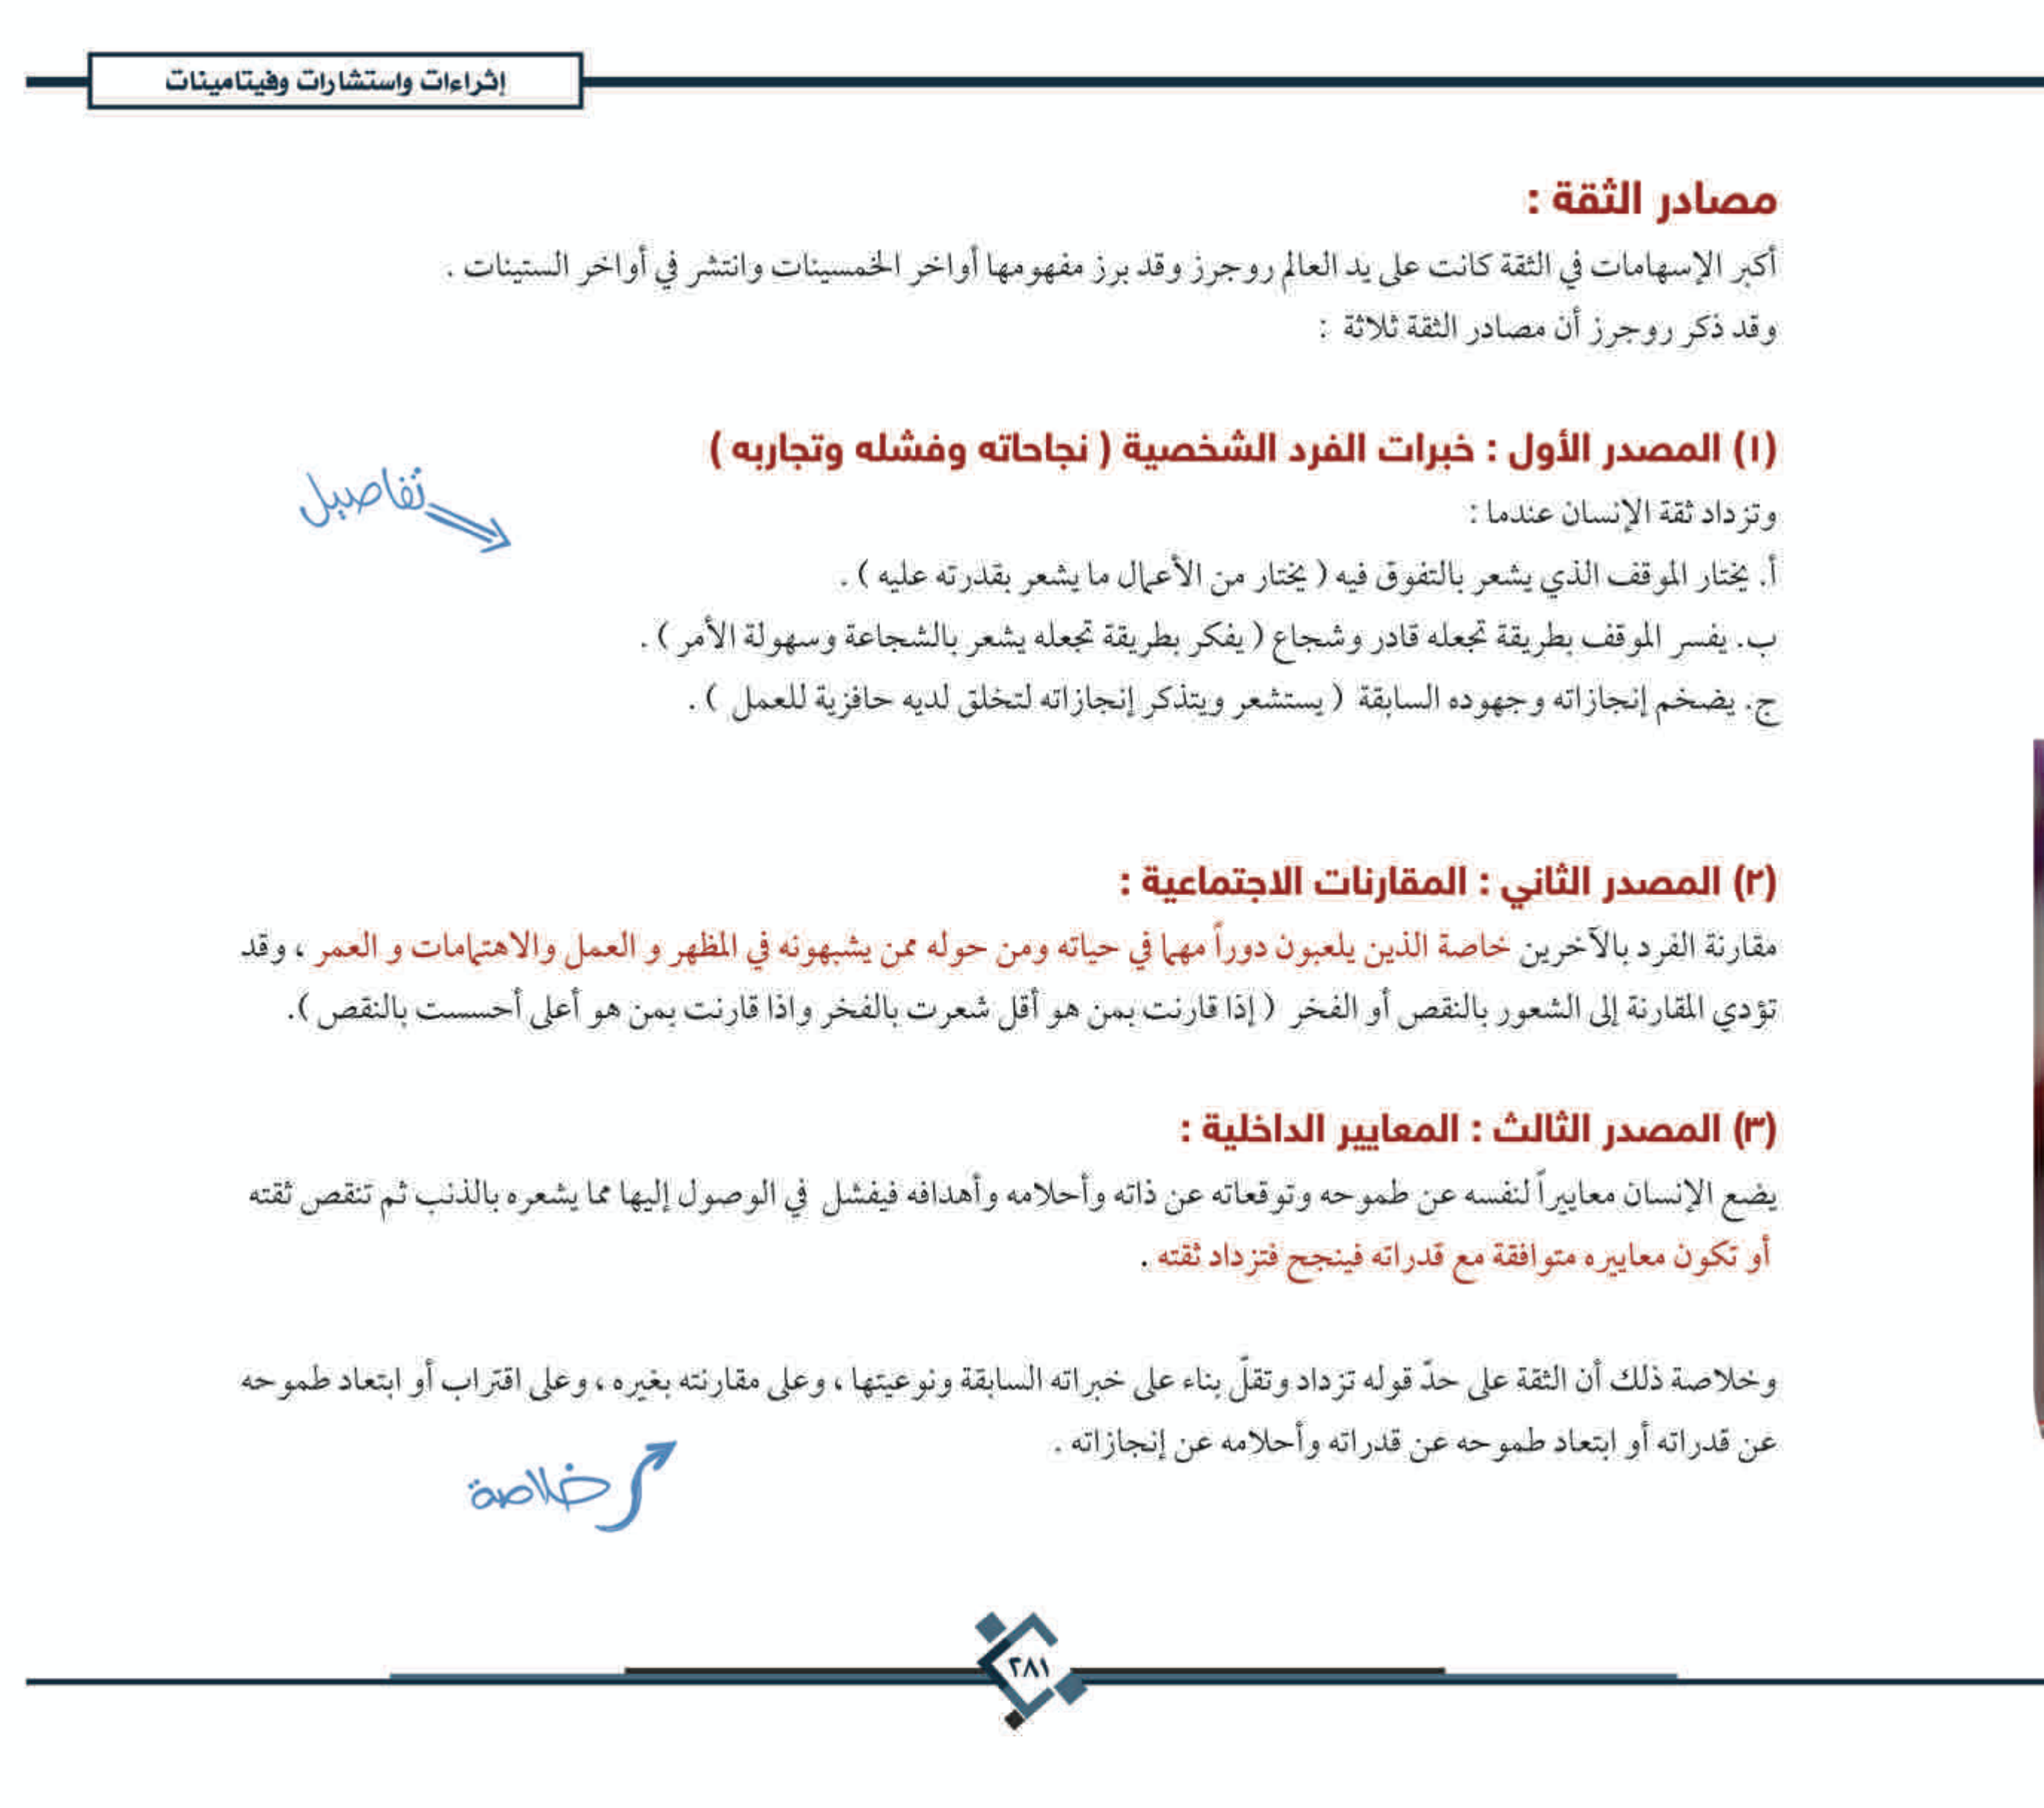 إثراءات واستشارات وفيتامينات
مصادر الثقة :
أكبر الإسهامات في الثقة كانت على يد العالم روجرز وقد برز مفهومها أواخر الخمسينات وانتشر في أواخر الستينات .
وقد ذكر روجرز أن مصادر الثقة ثلاثة :
(١) المصدر الأول : خبرات الفرد الشخصية ( نجاحاته وفشله وتجاربه )
تفاصيل
وتزداد ثقة الإنسان عندما :
أ. يختار الموقف الذي يشعر بالتفوق فيه ( يختار من الأعمال ما يشعر بقدرته عليه ) .
ب. يفسر الموقف بطريقة تجعله قادر وشجاع ( يفكر بطريقة تجعله يشعر بالشجاعة وسهولة الأمر ) .
ج. يضخم إنجازاته وجهوده السابقة ( يستشعر ويتذكر إنجازاته لتخلق لديه حافزية للعمل ) .
(٢) المصدر الثاني : المقارنات الاجتماعية :
مقارنة الفرد بالآخرين خاصة الذين يلعبون دوراً مهما في حياته ومن حوله ممن يشبهونه في المظهر و العمل والاهتمامات و العمر ، وقد
تؤدي المقارنة إلى الشعور بالنقص أو الفخر ( إذا قارنت بمن هو أقل شعرت بالفخر واذا قارنت بمن هو أعلى أحسست بالنقص ).
(٣) المصدر الثالث : المعايير الداخلية :
يضع الإنسان معاييراً لنفسه عن طموحه وتوقعاته عن ذاته وأحلامه وأهدافه فيفشل في الوصول إليها مما يشعره بالذنب ثم تنقص ثقته
أو تكون معاييره متوافقة مع قدراته فينجح فتزداد ثقته .
وخلاصة ذلك أن الثقة على حدّ قوله تزداد وتقلّ بناء على خبراته السابقة ونوعيتها ، وعلى مقارنته بغيره ، وعلى اقتراب أو ابتعاد طموحه
عن قدراته أو ابتعاد طموحه عن قدراته وأحلامه عن إنجازاته .
خلاصة
٢٨١